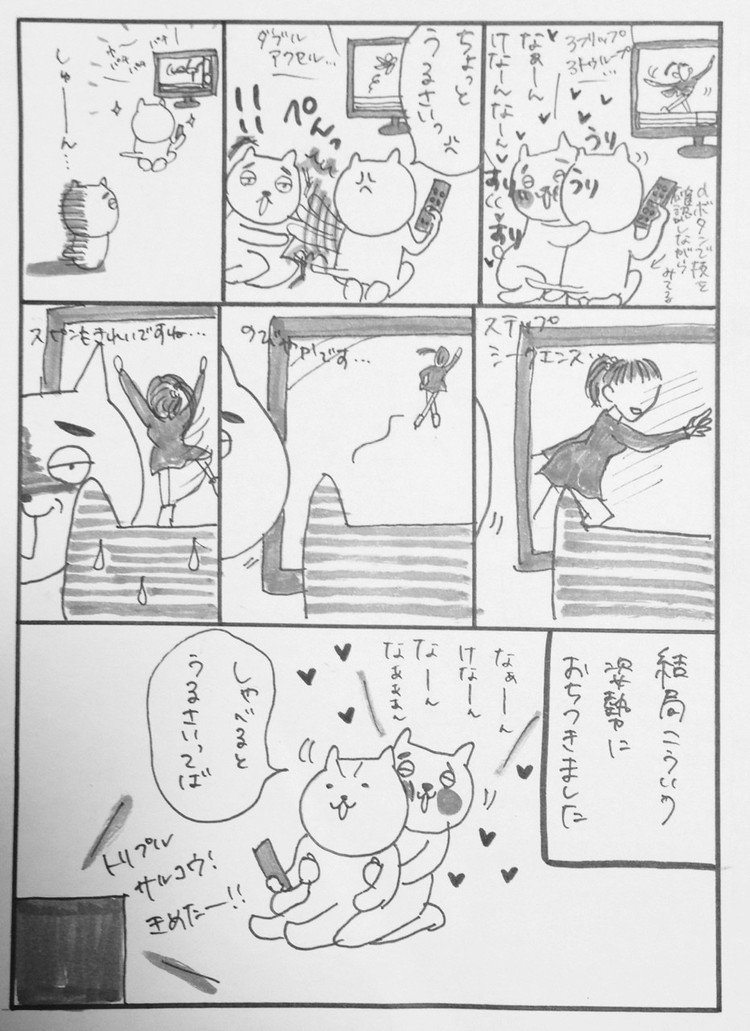 3フリップ
3トゥループ…
なぁーん
けなーんなーん
うり
うり
すり
すり
dボタンで技を
確認しながら
みてる
ちょっと
うるさいっ
ダブル
アクセル…
ぺんっ
!!
しゅーーん…
ステップ
シークエンス…
のびやかです…
スピンもきれいですね…
結局こういう
姿勢に
おちつきました
なぁーん
けなーん
なーん
なぁぁぁ~
しゃべると
うるさいってば
トリプル
サルコウ!
きめたー!!